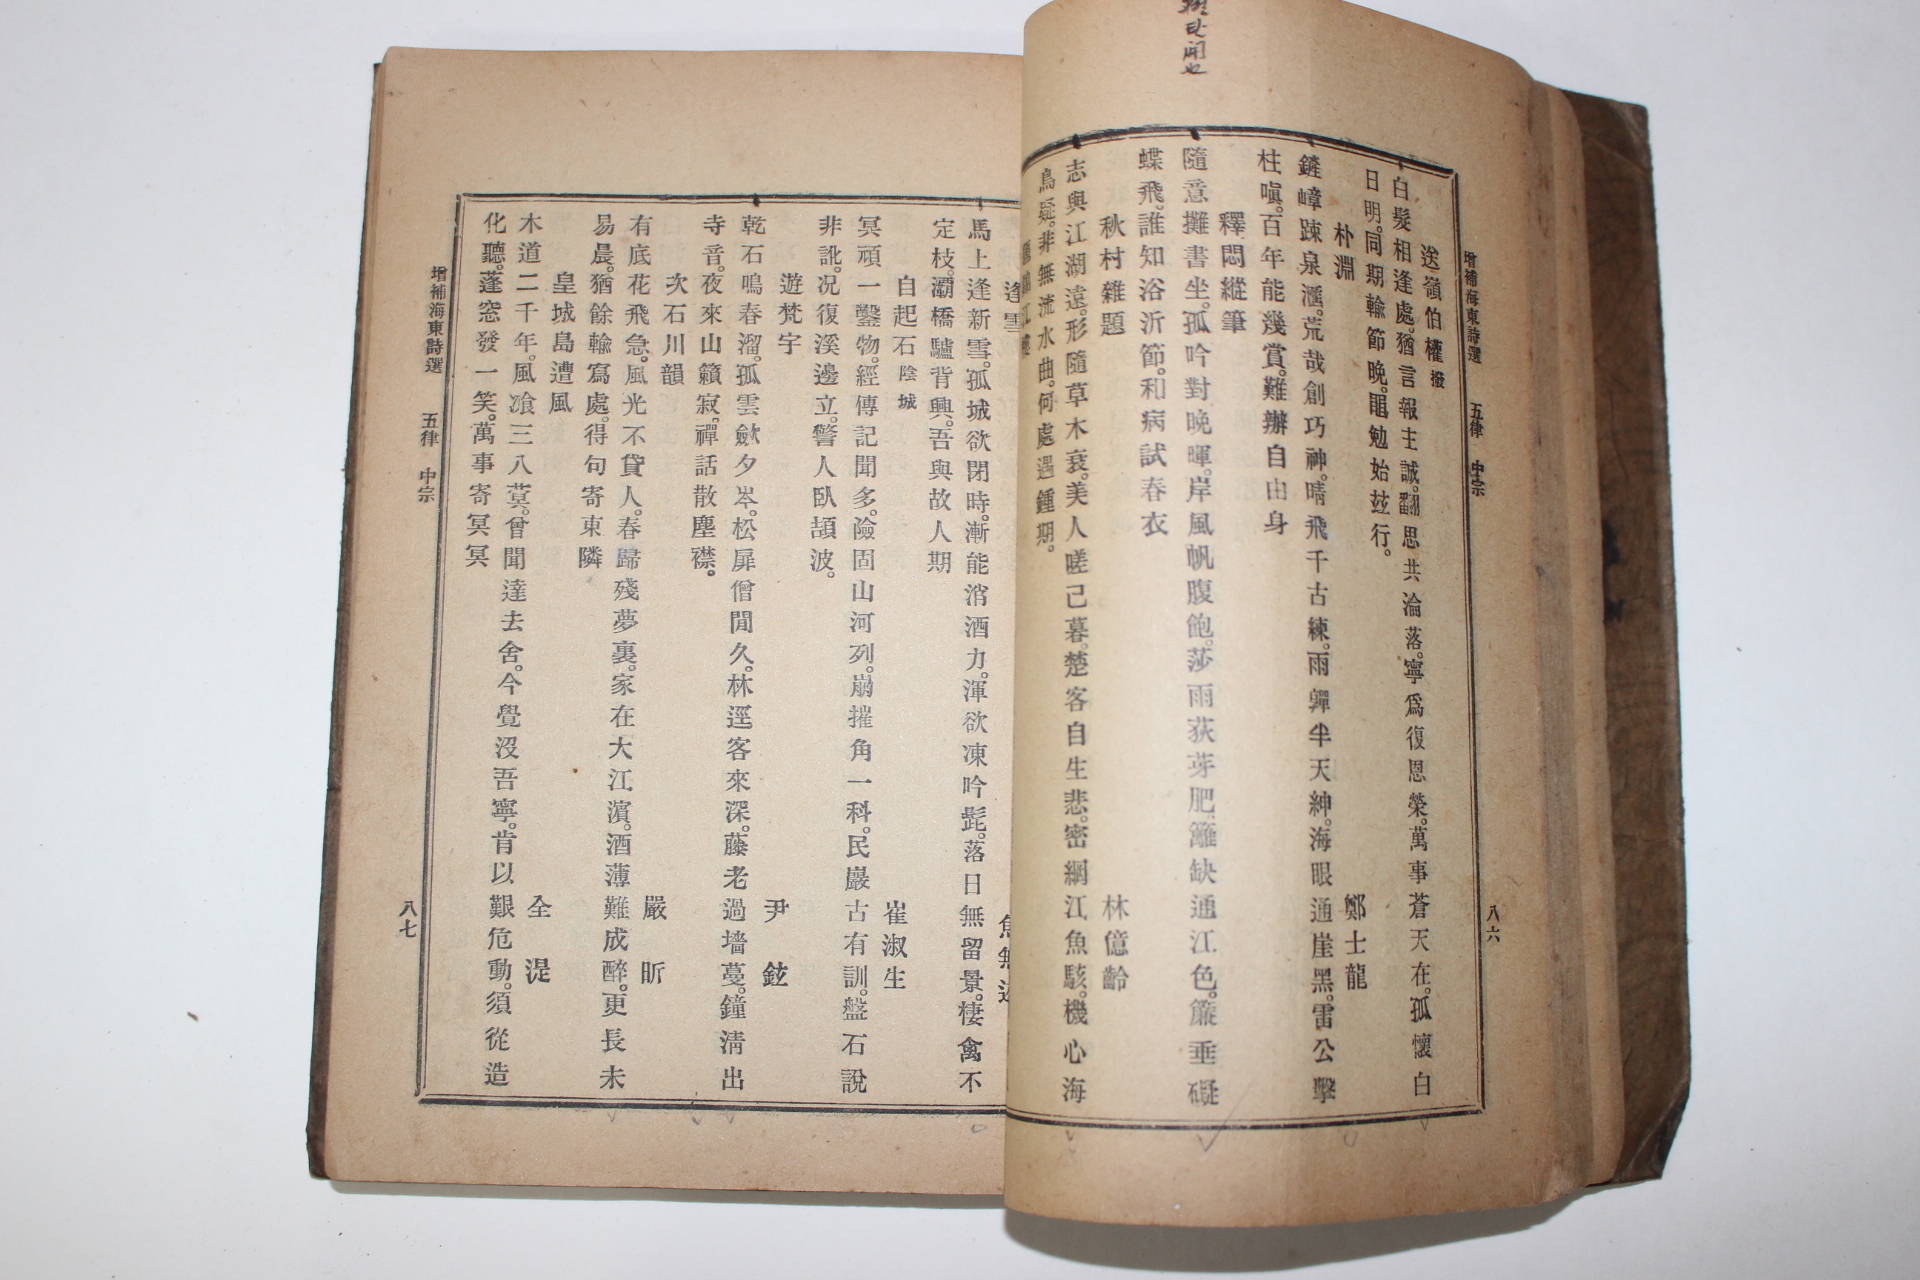 增補海東詩選 五律 中宗 八六
送嶺伯權撥
白髮相逢處。猶言報主誠。翻思共淪落。寧爲復恩榮。萬事蒼天在。孤懷白
日明。同期輸節晩。黽勉始玆行。
朴淵 鄭士龍
鏟嶂踈泉濦。荒哉創巧神。晴飛千古練。雨嚲半天紳。海眼通崖黑。雷公擊
柱嗔。百年能幾賞。難辦自由身
釋悶縱筆
隨意攤書坐。孤吟對晩暉。岸風帆腹飽。莎雨荻芽肥。籬缺通江色。簾垂礙
蝶飛。誰知浴沂節。和病試春衣
秋村雜題 林億齡
志與江湖遠。形隨草木衰。美人嗟己暮。楚客自生悲。密網江魚駭。機心海
鳥疑。非無流水曲。何處遇鍾期。
逢雪 魚無
馬上逢新雪。孤城欲閉時。漸能消酒力。渾欲凍吟髭。落日無留景。棲禽不
定枝。灞橋驢背興。吾與故人期
自起石陰城 崔淑生
冥頑一鑿物。經傳記聞多。險固山河列。崩摧角一科。民巖古有訓。盤石說
非訛。况復溪邊立。警人臥頡波。
遊梵宇 尹鉉
乾石鳴春溜。孤雲斂夕岑。松扉僧閒久。林逕客來深。藤老過墻蔓。鐘淸出
寺音。夜來山籟寂。禪話散塵襟。
次石川韻 嚴昕
有底花飛急。風光不貸人。春歸殘夢裏。家在大江濱。酒薄難成醉。更長未
易晨。猶餘輸寫處。得句寄東隣
皇城島遭風 全湜
木道二千年。風飡三八蓂。曾聞達去舍。今覺沒吾寧。肯以艱危動。須從造
化聽。蓬窓發一笑。萬事寄冥冥
增補海東詩選 五律 中宗 八七